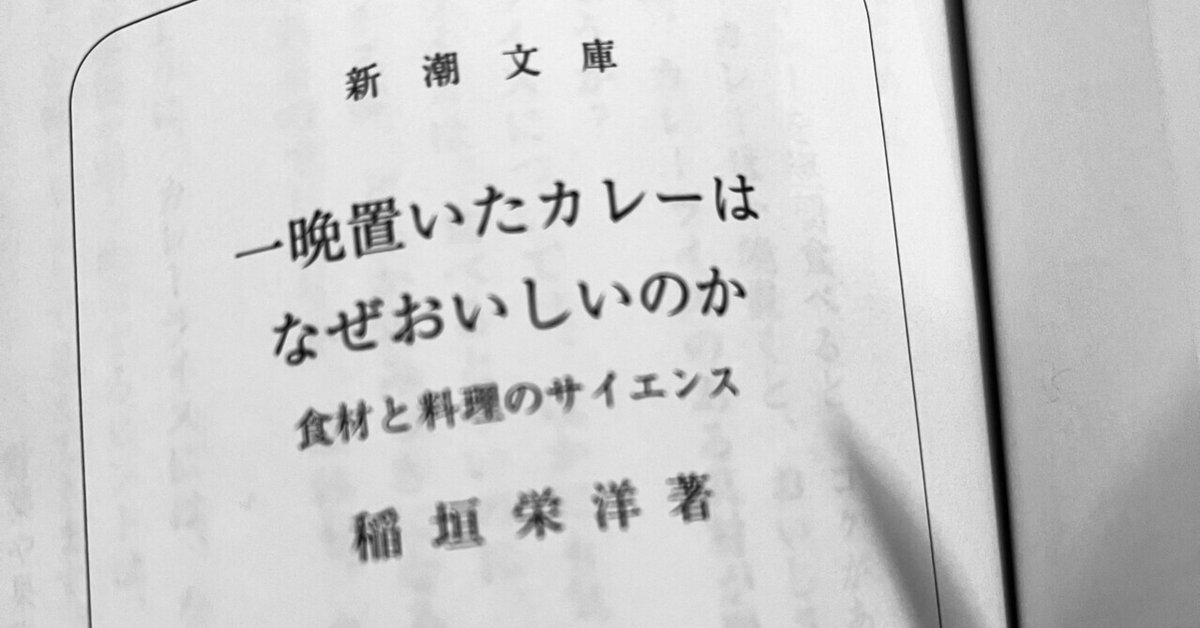 新潮文庫
一晩置いたカレーは
なぜおいしいのか
食材と料理のサイエンス
稲垣栄洋著